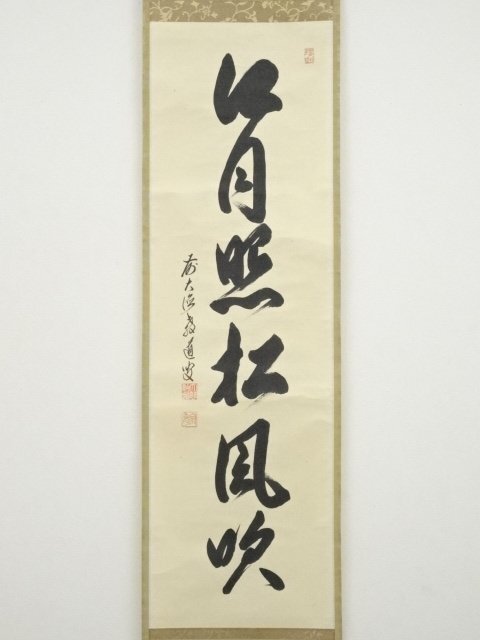 江月照松風吹
前大徳教道叟